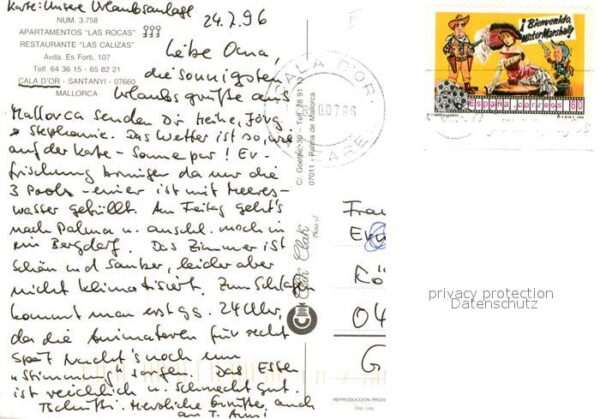 Karte: Unsere Urlaubsanlage
NUM. 3.758
APARTAMENTOS "LAS ROCAS"
RESTAURANTE "LAS CALIZAS"
Avda. Es Forti, 107
Telf. 64 36 15 - 65 82 21
CALA D'OR - SANTANYI - 07660
MALLORCA
24.7.96
Liebe Oma,
die sonnigsten
Urlaubsgrüße aus
Mallorca senden Dir Heike, Jörg
+ Stephanie. Das Wetter ist so, wie
auf der Karte - Sonne pur! Er-
frischung bringen da nur die
3 Pools - einer ist mit Meeres-
wasser gefüllt. Am Freitag geht's
nach Palma u. anschl. noch in
ein Bergdorf. Das Zimmer ist
schön und sauber, leider aber
nicht klimatisiert. Zum Schlafen
kommt man erst gg. 24 Uhr,
da die Animateure für recht
spät nacht's noch um
"Stimmung" sorgen. Das Essen
ist reichlich u. schmeckt gut.
Tschüßi. Herzliche Grüße auch
an T. Anni
CALA D'OR
BALEARES
C/. Goethe, 32 - Tel. 28 91
07011 - Palma de Mallorca
Clik Clak
REPRODUCCION PROHIB
Frau
Rö
04
G
¡Bienvenido,
míster Marshall!
España correos
privacy protection
Datenschutz